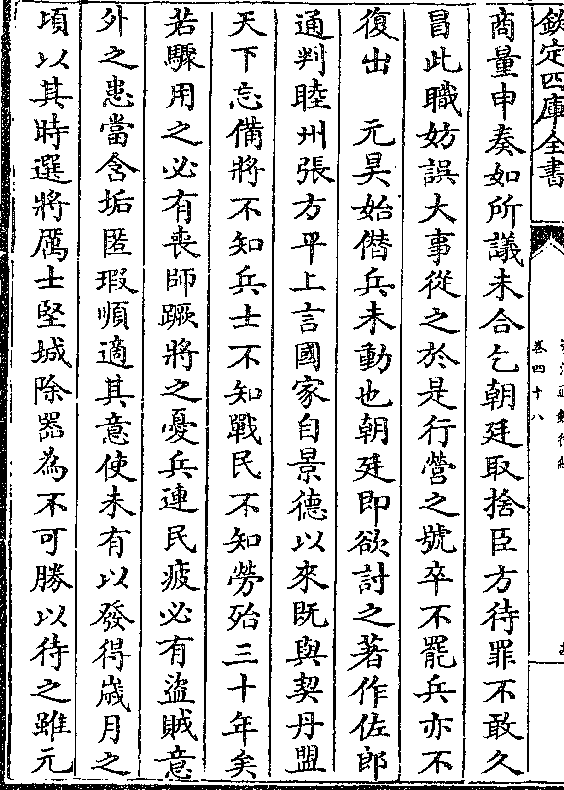 欽定四庫全書
卷四十八
商量申奏如所議未合乞朝廷取捨臣方待罪不敢久
冒此職妨誤大事從之於是行營之號卒不罷兵亦不
復出　元昊始僭兵未動也朝廷即欲討之著作佐郎
通判睦州張方平上言國家自景德以來既與契丹盟
天下忘備將不知兵士不知戰民不知勞殆三十年矣
若驟用之必有喪師蹶將之憂兵連民疲必有盜賊意
外之患當含垢匿瑕順適其意使未有以發得歲月之
頃以其時選將厲士堅城除器為不可勝以待之雖元